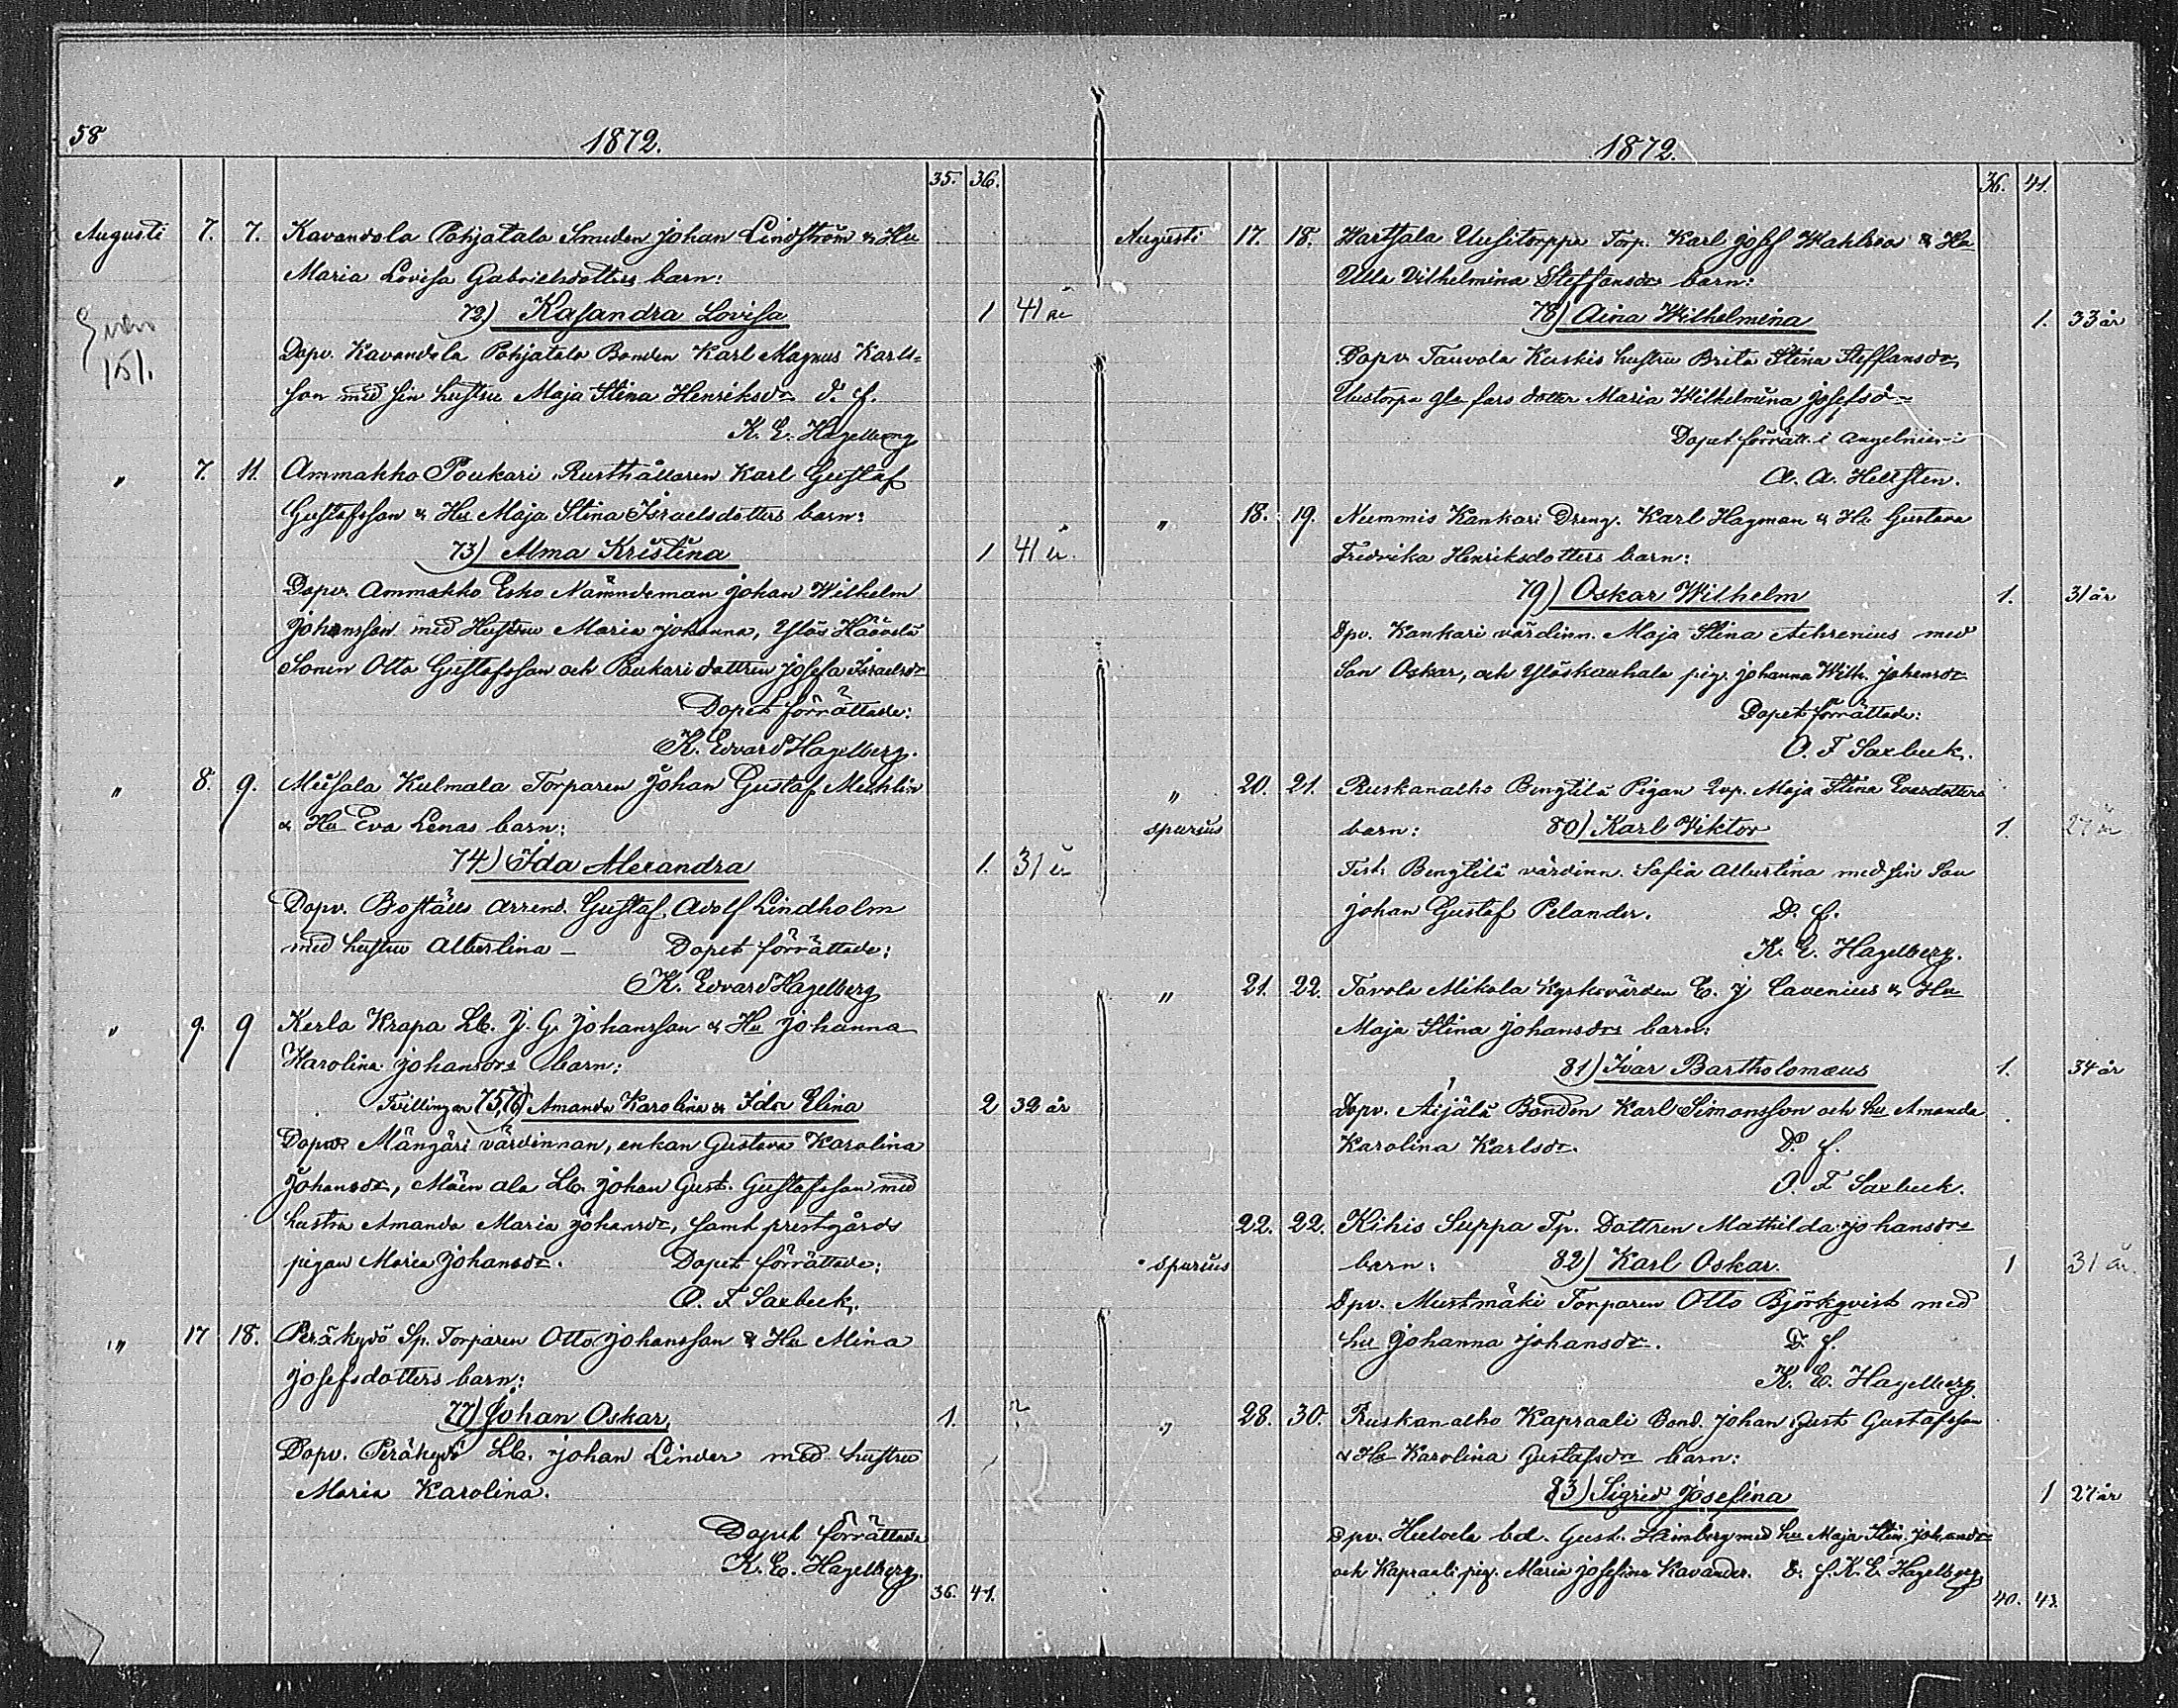 58
1872.
35. 36.
Augusti 7. 7. Kavandola Pohjatalo Smeden Johan Lindström & Hu
Maria Lovisa Gabrielsdotters barn:
72) Kasandra Lovisa 1 41 år
151.
Dopv. Kavandola Pohjatalo Bonden Karl Magnus Karls-
son med sin hustru Maja Stina Henriksdr d. f.
K. E. Hagelberg
" 7. 11. Ammakko Poukari Rusthållaren Karl Gustaf
Gustafsson & Hu Maja Stina Israelsdotters barn:
73) Alma Kristina 1 41 år.
Dopv. Ammakko Esko Nämndeman Johan Wilhelm
Johansson med Hustru Maria Johanna, Yläs Häävälä
Sonen Otto Gustafsson och Poukari dottren Josefa Israelsdr
Dopet förrättade:
K. Edvard Hagelberg.
" 8. 9. Meisala Kulmala Torparen Johan Gustaf Mechlin
& Hu Eva Lenas barn:
74) Ida Alexandra 1. 31 år
Dopv. Boställs arrend. Gustaf Adolf Lindholm
med hustru Albertina – Dopet förrättade:
K. Edvard Hagelberg
" 9. 9 Kerla Krapa Lb. J. G. Johansson & Hu Johanna
Karolina Johansdrs barn:
Tvillingar 75,76) Amanda Karolina & Ida Elina 2 32 år
Dopv Mängäri värdinnan, enkan Gustava Karolina
Johansdr, Mäen ala Lb. Johan Gust. Gustafsson med
hustru Amanda Maria Johansdr, samt prestgårds
pigan Maria Johansdr. Dopet förrättade:
O. F Saxbeck.
" 17 18. Peräkydö Sp. Torparen Otto Johansson & Hu Mina
Josefsdotters barn:
77) Johan Oskar 1. ?
Dopv. Peräkydö Lb. Johan Linder med hustru
Maria Karolina.
Dopet förrättade
K. E. Hagelberg.
36. 41.
1872.
36. 41.
Augusti 17. 18. Harttala Uusitorppa Torp. Karl Josef Wahlroos & Hu
Ulla Vilhelmina Steffansdrs barn:
78) Aina Wilhelmina 1. 33 år
Dopv. Tauvola Kuskis hustru Brita Stina Steffansdr,
Uustorpa gla fars dotter Maria Wilhelmina Josefsdr
Dopet förrätt. i Angelniemi
A. A. Hellsten.
" 18. 19. Nummis Kankari Dreng. Karl Hagman & Hu Gustava
Fredrika Henriksdotters barn:
79) Oskar Wilhelm 1. 31 år
Dpv. Kankari värdinn. Maja Stina Aehrenius med
Son Oskar, och Yläskauhala pig. Johanna Wilh. Johansdr
Dopet förrättade:
O. F Saxbeck.
" 20. 21. Ruskanalho Bengtilä Pigan Qvp. Maja Stina Evasdotters
spurius barn: 80) Karl Viktor 1. 27 år
Test: Bengtilä värdinn. Sofia Albertina med sin Son
Johan Gustaf Pelander. D. f.
K. E. Hagelberg.
" 21. 22. Tavola Mikola Kyrkovärden E. J Cavenius & Hu
Maja Stina Johansdrs barn:
81) Ivar Bartholomæus 1. 34 år
Dopv. Äijälä Bonden Karl Simonsson och hu Amanda
Karolina Karlsdr. D. f.
O. F Saxbeck.
22. 22. Kihis Seppä Tp. Dottren Mathilda Johansdrs
spurius barn: 82) Karl Oskar. 1 31 år.
Dpv. Mustmäki Torparen Otto Björkqvist med
hu Johanna Johansdr. D. f.
K. E. Hagelberg
" 28. 30. Ruskanalho Kapraali Bond. Johan Gust Gustafsson
& Hu Karolina Gustafsdrs barn:
83) Sigrid Josefina 1 27 år
Dpv. Hulvela bd. Gust. Heimberg med hu Maja Stin. Johansdr
och Kapraali pig. Maria Josefina Kavander. D. f. K. E. Hagelberg
40. 43.